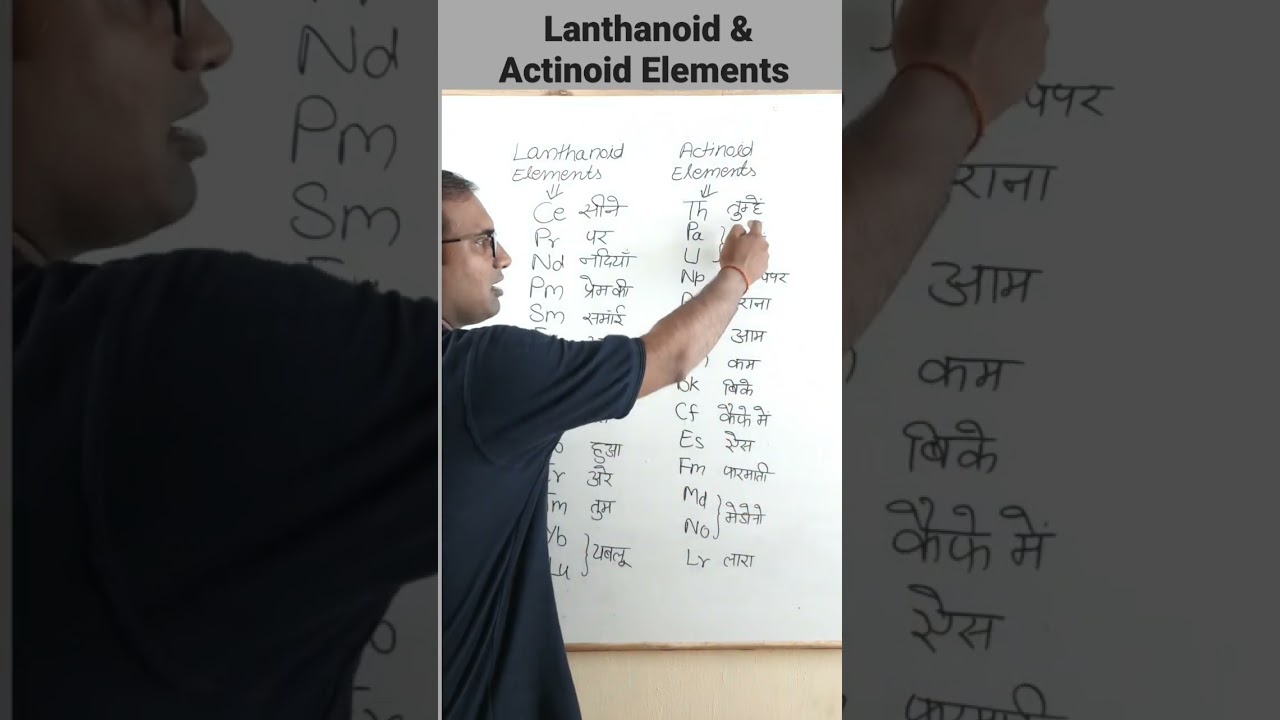 Lanthanoid &
Actinoid Elements
Lanthanoid
Elements
Ce सीने
Pr पर
Nd नदियाँ
Pm प्रेम की
Sm समाई
हुआ
अरे
तुम
Yb
Lu
यबलू
Actinoid
Elements
Th तुम्हें
Pa
U
Np पर
राना
आम
कम
Bk बिके
Cf कैफे में
Es ऐस
Fm फारमाती
Md
No
मेडोनो
Lr लारा
Nd
Pm
Sm
पर
राना
आम
कम
बिके
कैफे में
ऐस